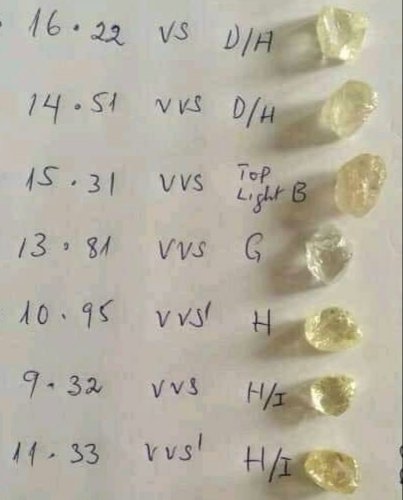 16.22 VS D/H
14.51 VVS D/H
15.31 VVS Top Light B
13.81 VVS G
10.95 VVS' H
9.32 VVS H/I
11.33 VVS' H/I